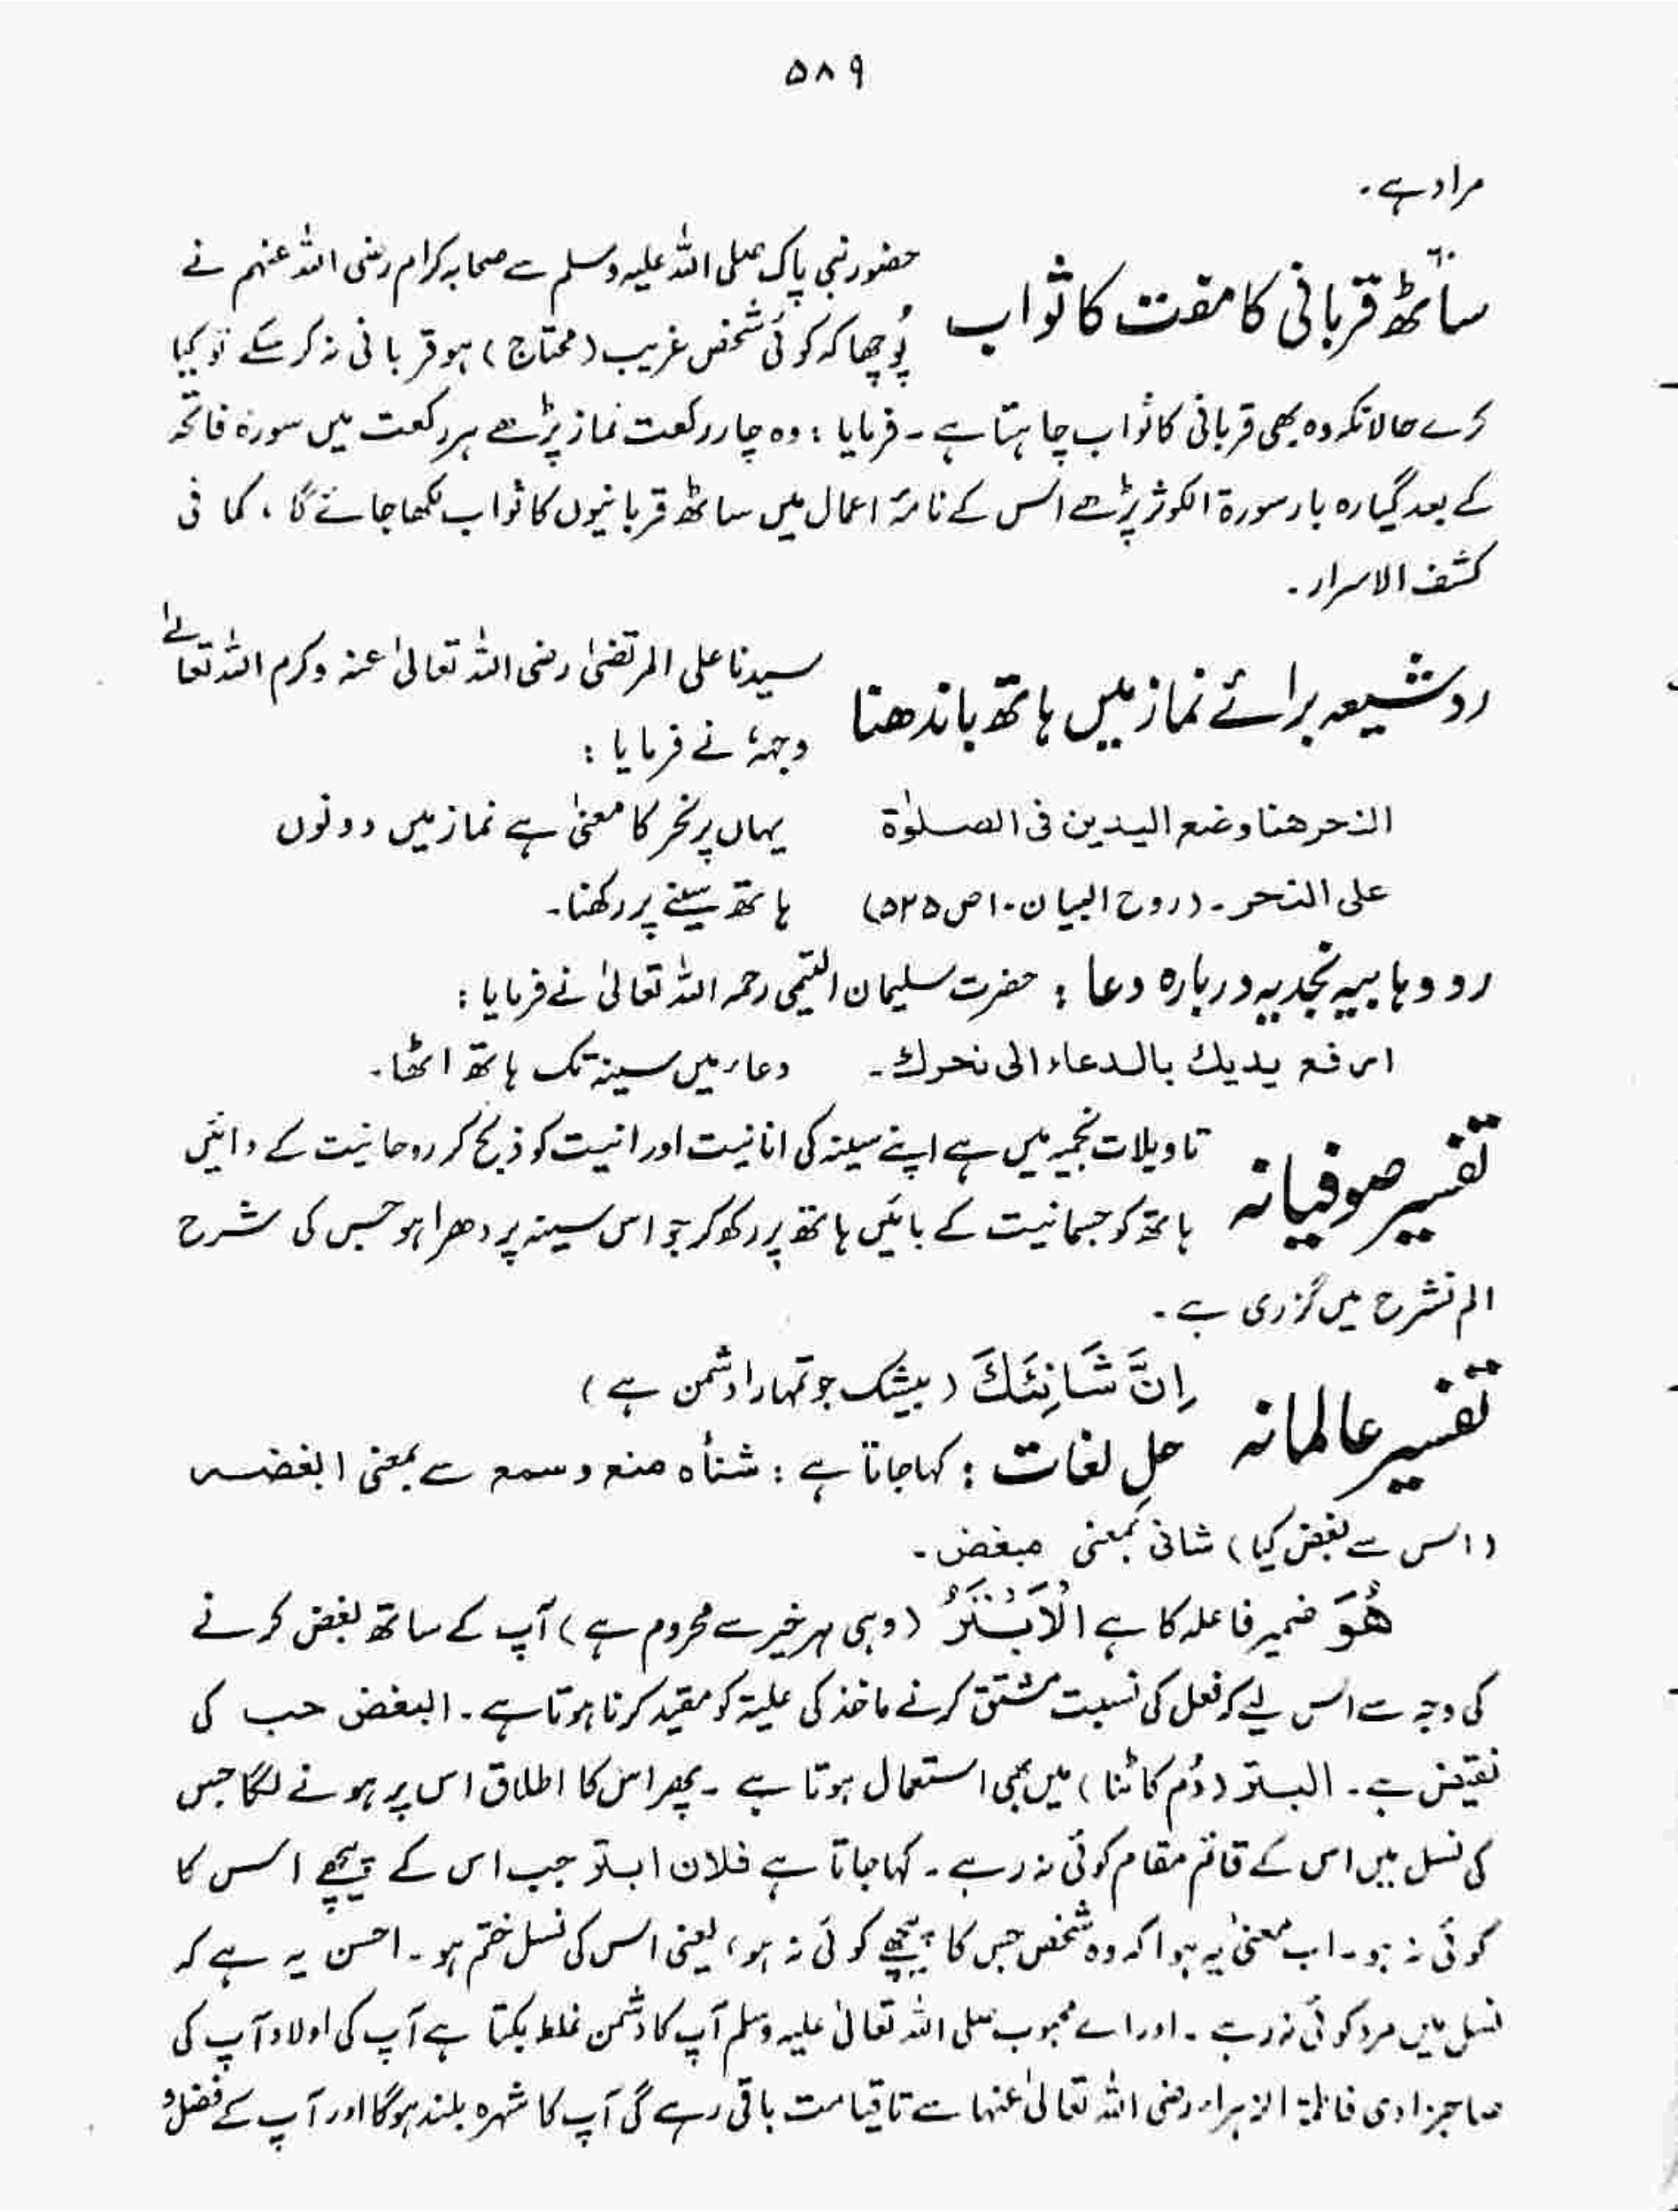 ۵۸۹
مراد ہے۔
ساٹھ قربانی کا مفت کا ثواب
۶۰
حضور نبی پاک صلی اللہ علیہ وسلم سے صحابہ کرام رضی اللہ عنہم نے
پُوچھا کہ کوئی شخص غریب (محتاج) ہو قربانی نہ کر سکے تو کیا
کرے حالانکہ وہ بھی قربانی کا ثواب چاہتا ہے۔ فرمایا : وہ چار رکعت نماز پڑھے ہر رکعت میں سورۃ فاتحہ
کے بعد گیارہ بار سورۃ الکوثر پڑھے اس کے نامۂ اعمال میں ساٹھ قربانیوں کا ثواب لکھا جائے گا ، کما فی
کشف الاسرار۔
رد شیعہ برائے نماز میں ہاتھ باندھنا
سیدنا علی المرتضیٰ رضی اللہ تعالیٰ عنہ وکرم اللہ تعالےٰ
وجہہٗ نے فرمایا :
النحر ھنا وضع الیدین فی الصلوٰۃ
یہاں پر نحر کا معنیٰ ہے نماز میں دونوں
علی النحر۔ (روح البیان۔ ۱ ص ۵۲۵)
ہاتھ سینے پر رکھنا۔
رد وہابیہ نجدیہ دربارہ دعا : حضرت سلیمان التیمی رحمہ اللہ تعالیٰ نے فرمایا :
ارفع یدیك بالدعاء الی نحرك۔
دعاء میں سینہ تک ہاتھ اٹھا۔
تفسیر صوفیانہ
تاویلات نجمیہ میں ہے اپنے سینہ کی انانیت اور انیت کو ذبح کر روحانیت کے دائیں
ہاتھ کو جسمانیت کے بائیں ہاتھ پر رکھ کر جو اس سینہ پر دھرا ہو جس کی شرح
الم نشرح میں گزری ہے۔
تفسیر عالمانہ
اِنَّ شَانِئَكَ (بیشک جو تمہارا دشمن ہے)
حلِ لغات : کہا جاتا ہے : شنأہ منع و سمع سے بمعنی ابغضہ
(اس سے بغض کیا) شانی بمعنی مبغض۔
ھُوَ ضمیر فاعلہ کا ہے الْاَبْتَرُ (وہی ہر خیر سے محروم ہے) آپ کے ساتھ بغض کرنے
کی وجہ سے اس لیے کہ فعل کی نسبت مشتق کرنے ماخذ کی علیۃ کو مقید کرنا ہوتا ہے۔ البغض حب کی
نقیض ہے۔ البتر (دُم کاٹنا) میں بھی استعمال ہوتا ہے۔ پھر اس کا اطلاق اس پر ہونے لگا جس
کی نسل میں اس کے قائم مقام کوئی نہ رہے۔ کہا جاتا ہے فلان ابتر جب اس کے پیچھے اس کا
کوئی نہ ہو۔ اب معنیٰ یہ ہوا کہ وہ شخص جس کا پیچھے کوئی نہ ہو، یعنی اس کی نسل ختم ہو۔ احسن یہ ہے کہ
نسل میں مرد کوئی نہ رہے۔ اور اے محبوب صلی اللہ تعالیٰ علیہ وسلم آپ کا دشمن غلط بکتا ہے آپ کی اولاد آپ کی
صاجزادی فاطمۃ الزہراء رضی اللہ تعالیٰ عنہا سے تا قیامت باقی رہے گی آپ کا شہرہ بلند ہوگا اور آپ کے فضل و